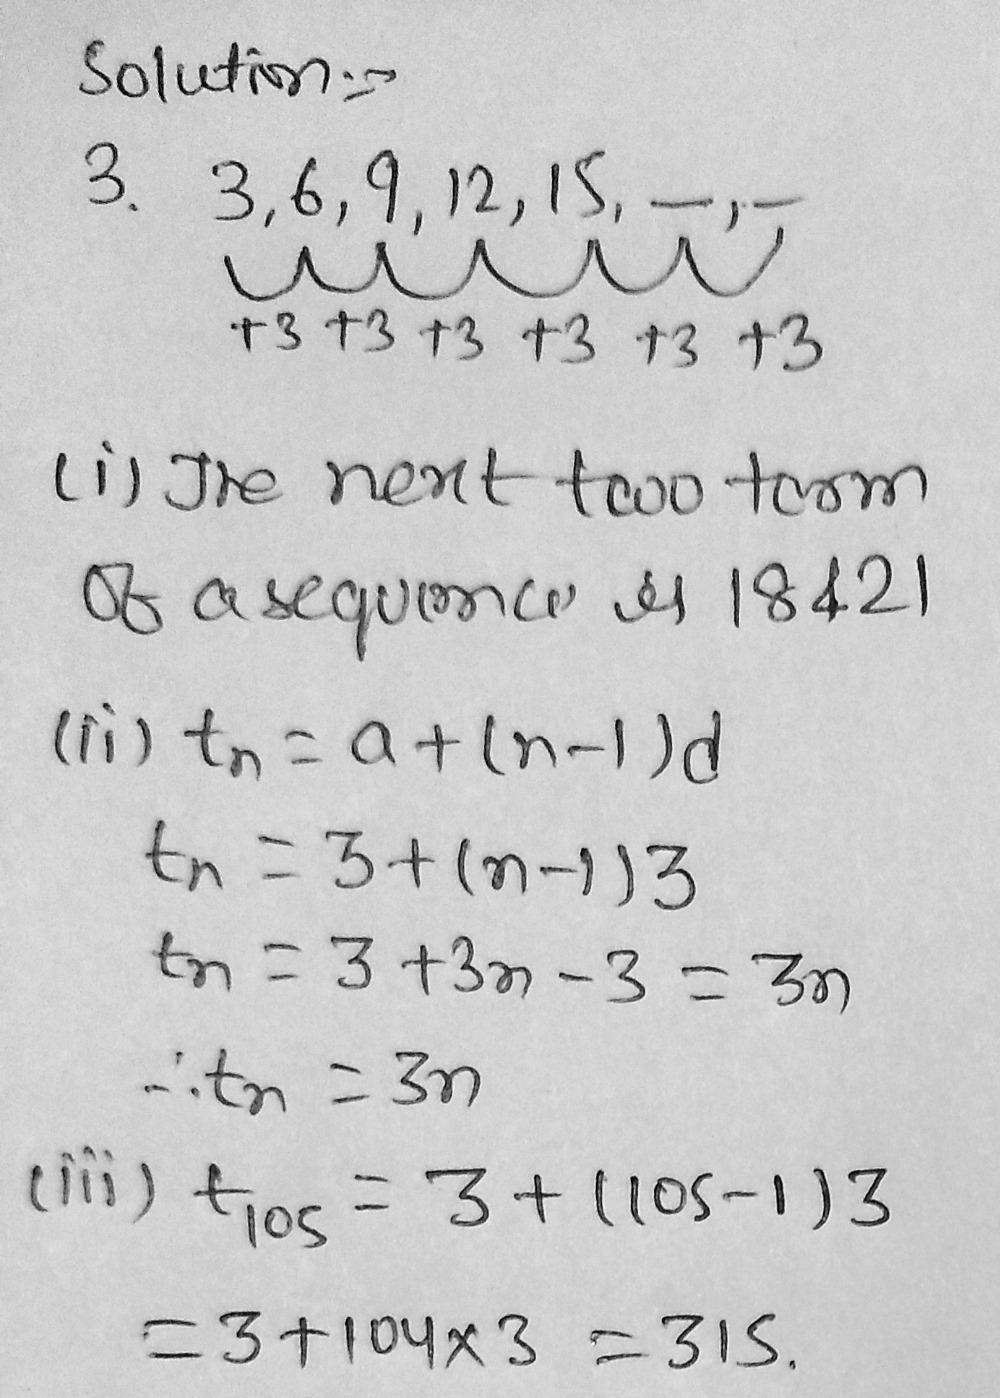 Solution:-
3. 3, 6, 9, 12, 15, -, -
+3 +3 +3 +3 +3 +3
(i) The next two term
Of a sequence is 18 & 21
(ii) tn = a + (n-1)d
tn = 3 + (n-1)3
tn = 3 + 3n - 3 = 3n
∴ tn = 3n
(iii) t105 = 3 + (105-1)3
= 3 + 104 × 3 = 315.